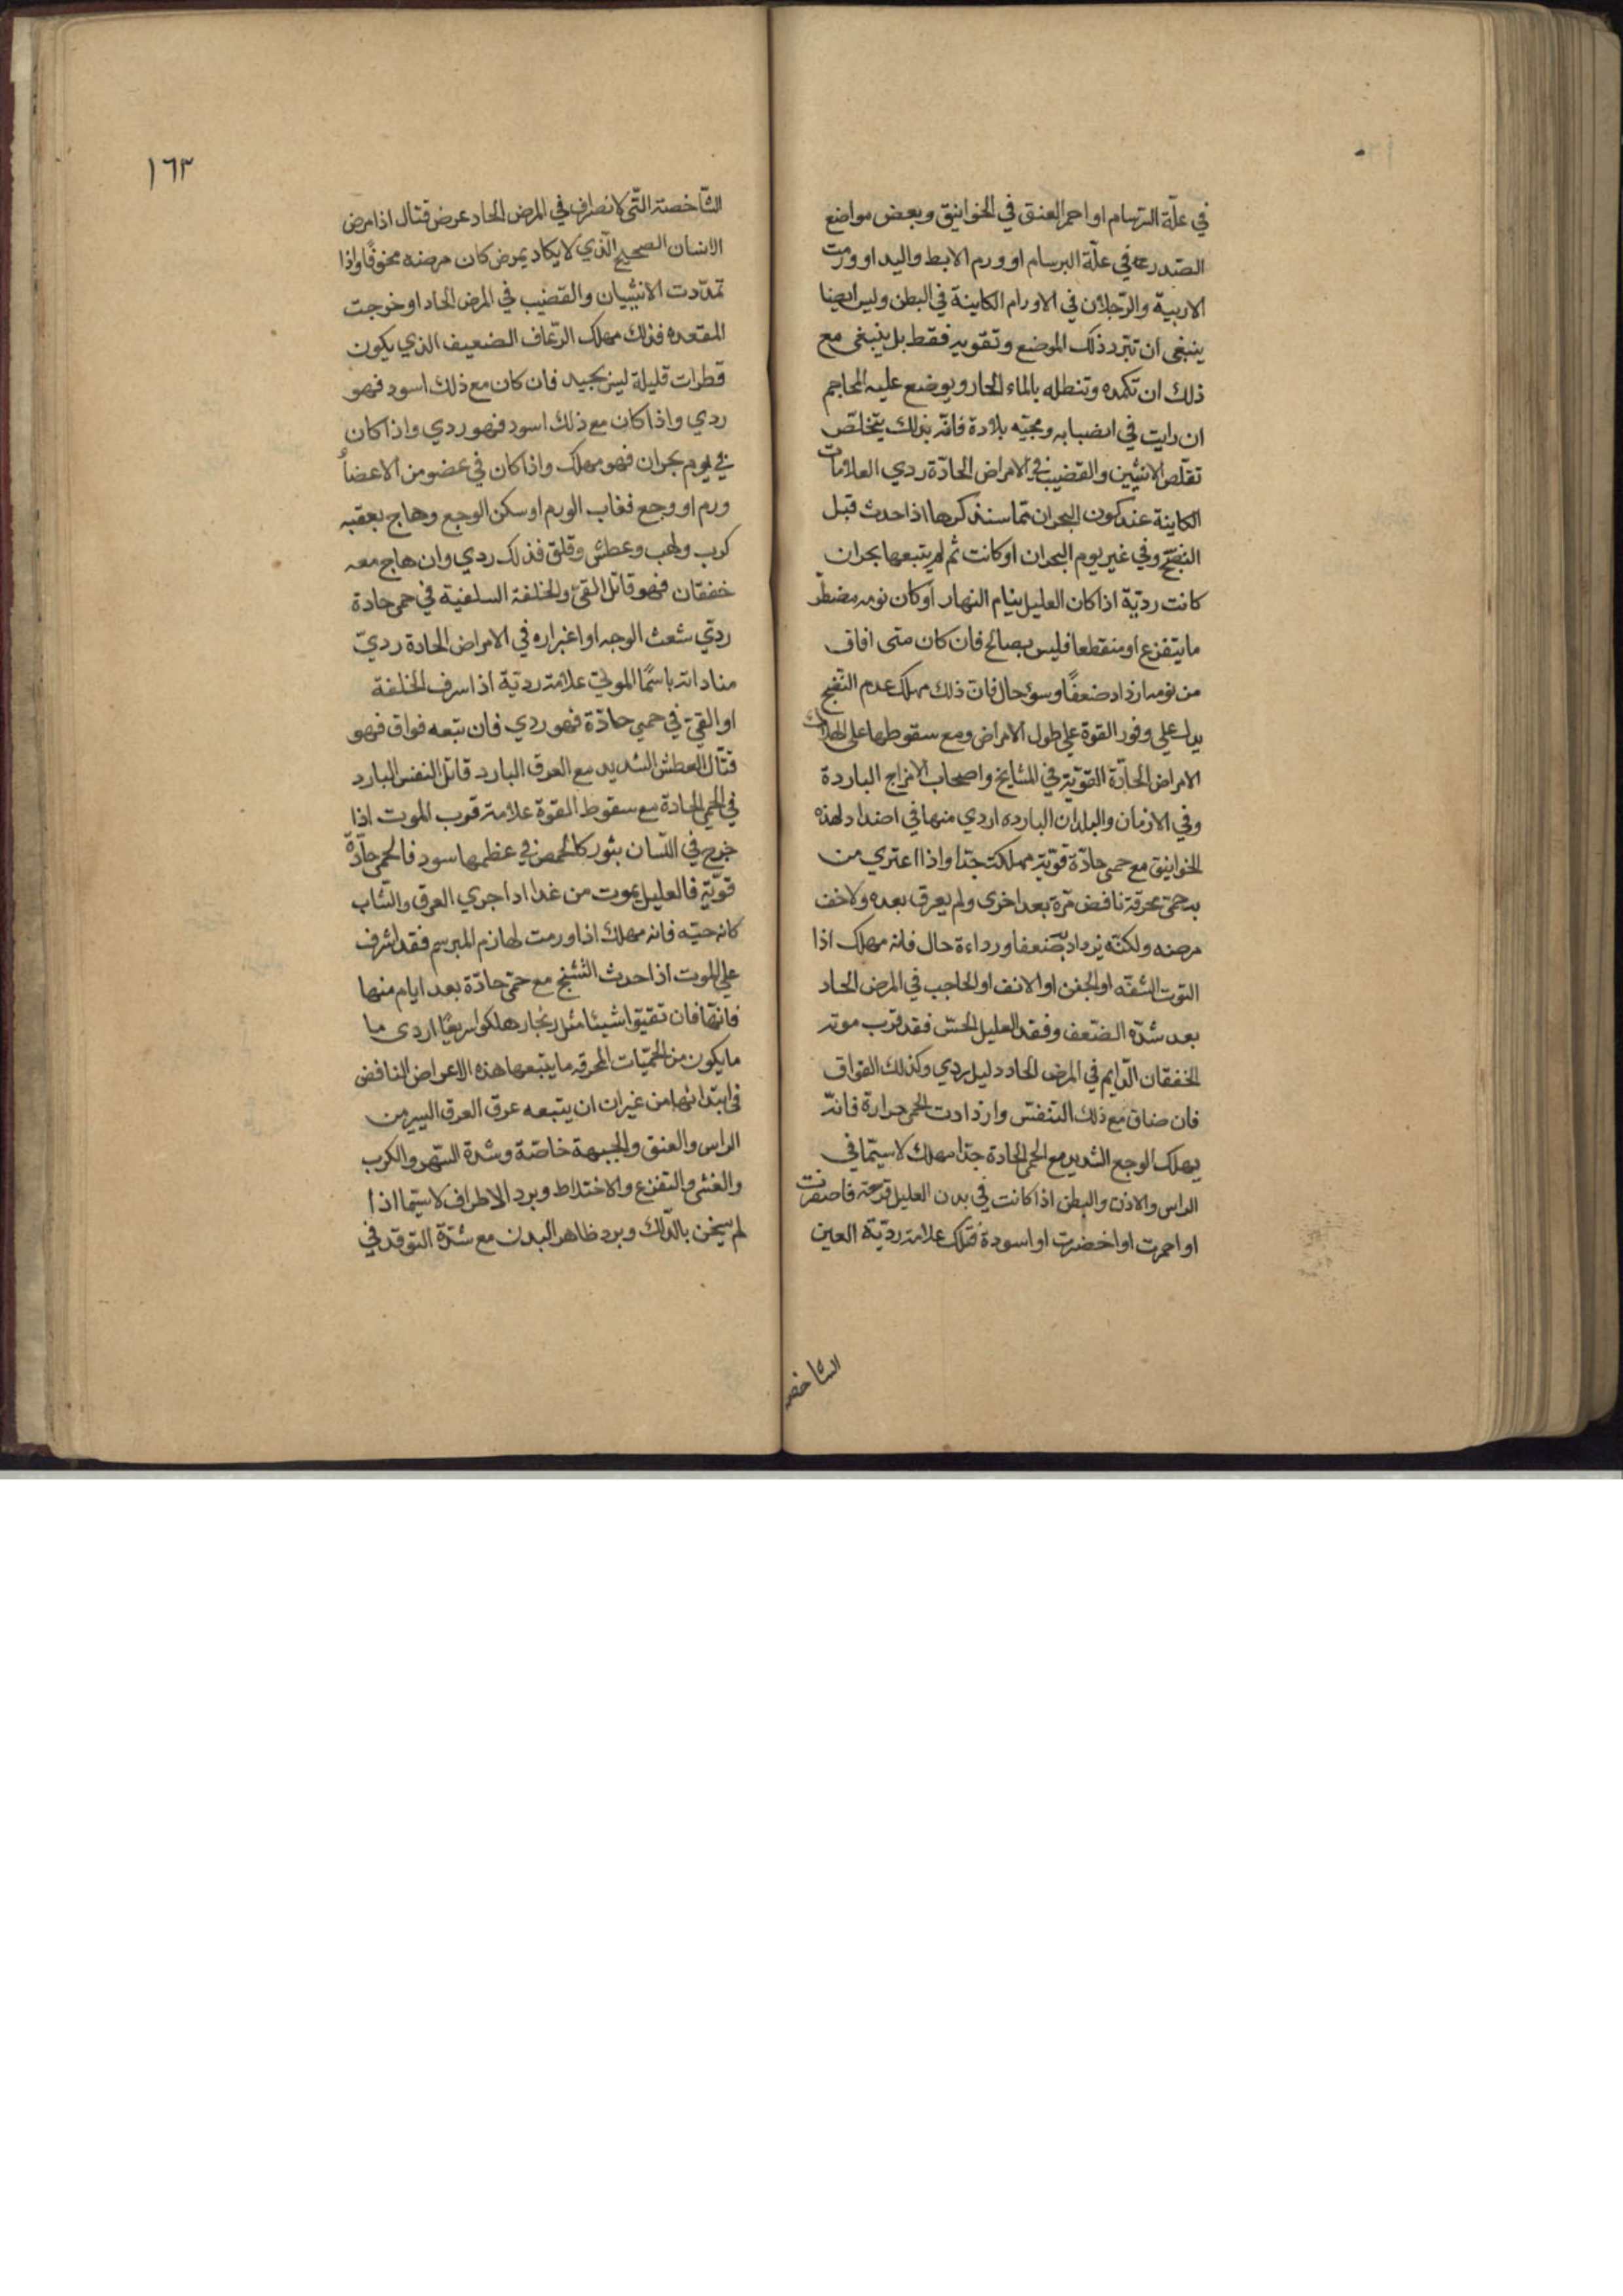 في علّة السّرسام او احمر العنق في الخوانيق وبعض مواضع
الصّدر في علّة البرسام او ورم الابط واليد او ورمت
الاربية والرّجلان في الاورام الكاينة في البطن وليس ايضا
ينبغي ان تبّرد ذلك الموضع وتقويه فقط بل ينبغي مع
ذلك ان تكمده وتنطله بالماء الحار ويوضع عليه المحاجم
ان رايت في انصبابه ومجيّه بلادة فانّه بذلك يتخلّص
تقلّص الانثيين والقضيب في الامراض الحادّة ردي العلامات
الكاينة عند كون البحران ممّا سنذكرها اذا حدث قبل
النضج وفي غير يوم البحران او كانت ثم لم يتبعها بحران
كانت رديّة اذا كان العليل ينام النهار او كان نومه مضطر
ما يتفزع او منقطعا فليس بصالح فان كان متى افاق
من نومه ازداد ضعفًا وسوء حال فان ذلك مهلك عدم النضج
يدل علي وفور القوة علي طول الامراض ومع سقوطها على الهلاك
الامراض الحادّة القويّة في المشايخ واصحاب الامزاج الباردة
وفي الازمان والبلدان البارده اردي منها في اضداد لهذه
الخوانيق مع حمى حادّة قويّة مهلكة جدّا واذا اعتري من
به حمّى محرقة نافض مرّة بعد اخرى ولم يعرق بعده ولا خف
مرضه ولكنّه يزداد به ضعفا ورداءة حال فانه مهلك اذا
التوت الشفّه او الجفن او الانف او الحاجب في المرض الحاد
بعد شدّه الضّعف وفقد العليل الحسّ فقد قرب موته
الخفقان الدّايم في المرض الحاد دليل ردي وكذلك الفواق
فان ضاق مع ذلك التنفسّ وازدادت الحمى حرارة فانّه
يهلك الوجع الشديد مع الحمى الحادة جدّا مهلك لا سيّما في
الراس والاذن والبطن اذا كانت في بدن العليل قرحة فاصفرت
او احمرت او اخضرت او اسودة فتلك علامة رديّة العين
الشاخصه
١٦٣
الشّاخصة التّي لا تصرف في المرض الحاد عرض قتال اذا مرض
الانسان الصحيح الّذي لا يكاد يمرض كان مرضه مخوفًا واذا
تمدّدت الانثييان والقضيب في المرض الحاد او خرجت
المقعده فذلك مهلك الرّعاف الضعيف الذي يكون
قطرات قليلة ليس بجيد فان كان مع ذلك اسود فهو
ردي واذا كان مع ذلك اسود فهو ردي واذا كان
في يوم بحران فهو مهلك واذا كان في عضو من الاعضاء
ورم او وجع فغاب الورم او سكن الوجع وهاج بعقبه
كرب ولهب وعطش وقلق فذلك ردي وان هاج معه
خفقان فهو قاتل القئ والخلفة السلفية في حمى حادة
ردّي شعث الوجه او اغبراره في الامراض الحادة رديّ
مناداته باسمًا الموتي علامة رديّة اذا اسرف الخلفة
او القئ في حمي حادّة فهو ردي فان تبعه فواق فهو
قتّال العطش الشديد مع العرق البارد قاتل النفس البارد
في الحمي الحادة مع سقوط القوة علامة قرب الموت اذا
خرج في اللّسان بثور كالحمص في عظمها سود فالحمى حادّة
قويّة فالعليل يموت من غد اذا جري العرق والشاب
كانه حيّه فانه مهلك اذا ورمت لهازم المبرسم فقد اشرف
علي الموت اذا حدث التشنج مع حمّى حادّة بعد ايام منها
فانها فان تقيّوا شيئا مثل زنجار هلكوا سريعًا اردى ما
ما يكون من الحميّات المحرقه ما يتبعها هذه الاعراض النافض
في ابتدائها من غير ان ان يتبعه عرق العرق اليسير من
الراس والعنق والجبهة خاصّة وشدة السّهر والكرب
والغشي والتفزع والاختلاط وبرد الاطراف لا سيّما اذا
لم يسخن بالدّلك وبرد ظاهر البدن مع شدّة التوقد في